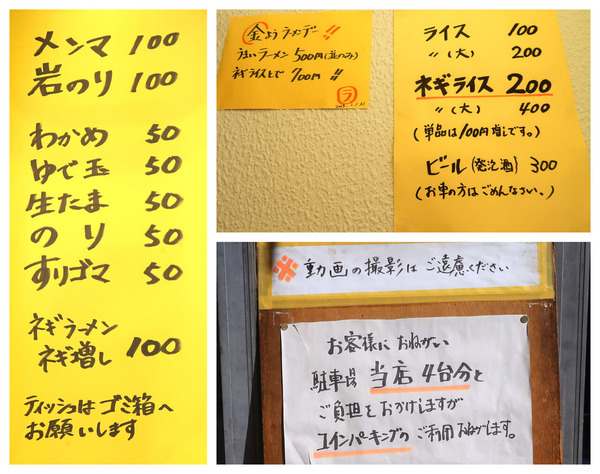 メンマ 100
岩のり 100
わかめ 50
ゆで玉 50
生たま 50
のり 50
すりゴマ 50
ネギラーメン
ネギ増し 100
ティッシュはゴミ箱へ
お願いします
金よラーメンデー!!
うまいラーメン 500円(並のみ)
ネギライスとで 700円!!
ラ
ライス 100
〃(大) 200
ネギライス 200
〃(大) 400
(単品は100円増しです。)
ビール(発泡酒) 300
(お車の方はごめんなさい、)
※動画の撮影はご遠慮ください
お客様におねがい
駐車場 当店4台分と
ご負担をおかけしますが
コインパーキングのご利用おねがいします。